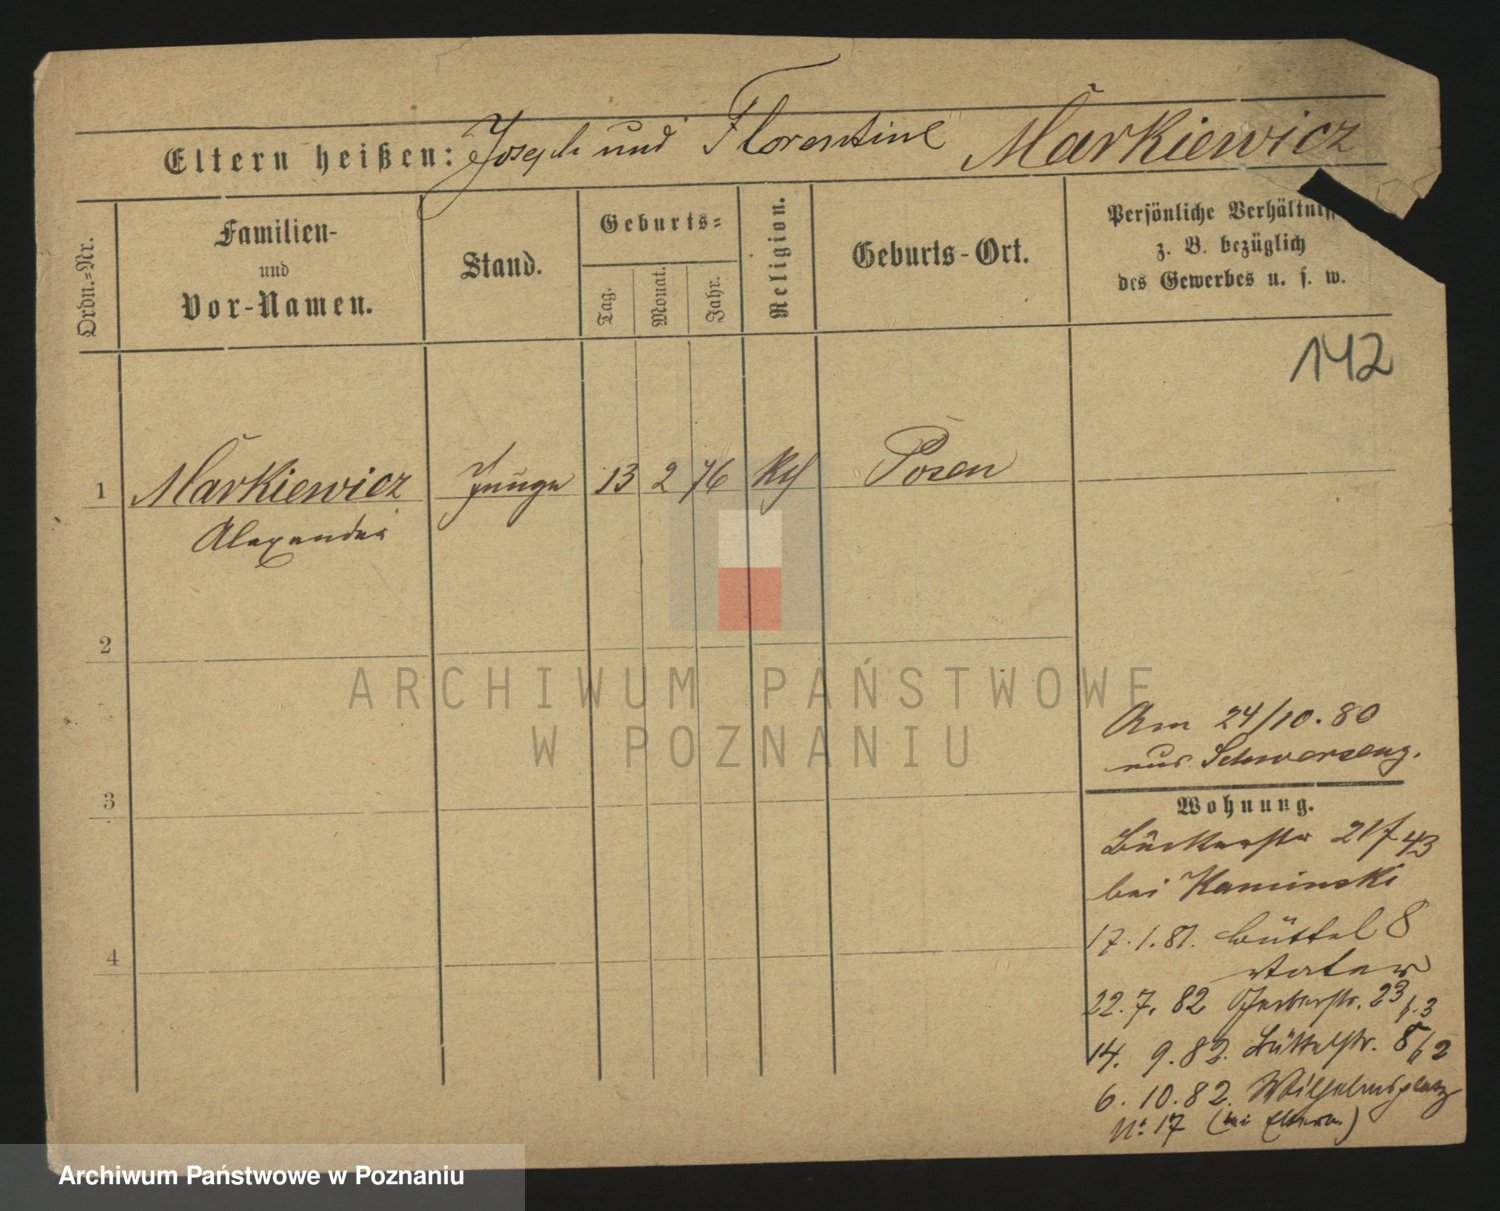 Eltern heißen: Joseph und Florentine Markiewicz
Ordn.-Nr.
Familien-
und
Vor-Namen.
Stand.
Geburts-
Tag.
Monat.
Jahr.
Religion.
Geburts-Ort.
Persönliche Verhältniss
z. B. bezüglich
des Gewerbes u. s. w.
142
1 Markiewicz Junge 13 2 76 Kth Posen
Alexander
2
3
4
Am 24/10.80
aus Schwersenz.
Wohnung.
Bäckerstr 21/43
bei Kaminski
17.1.81. Büttel 8
Vater
22.7.82 Gerberstr. 23
14.9.82. Büttelstr. 8
6.10.82. Wilhelmsplatz
No 17 (bei Eltern)
ARCHIWUM PAŃSTWOWE
W POZNANIU
Archiwum Państwowe w Poznaniu